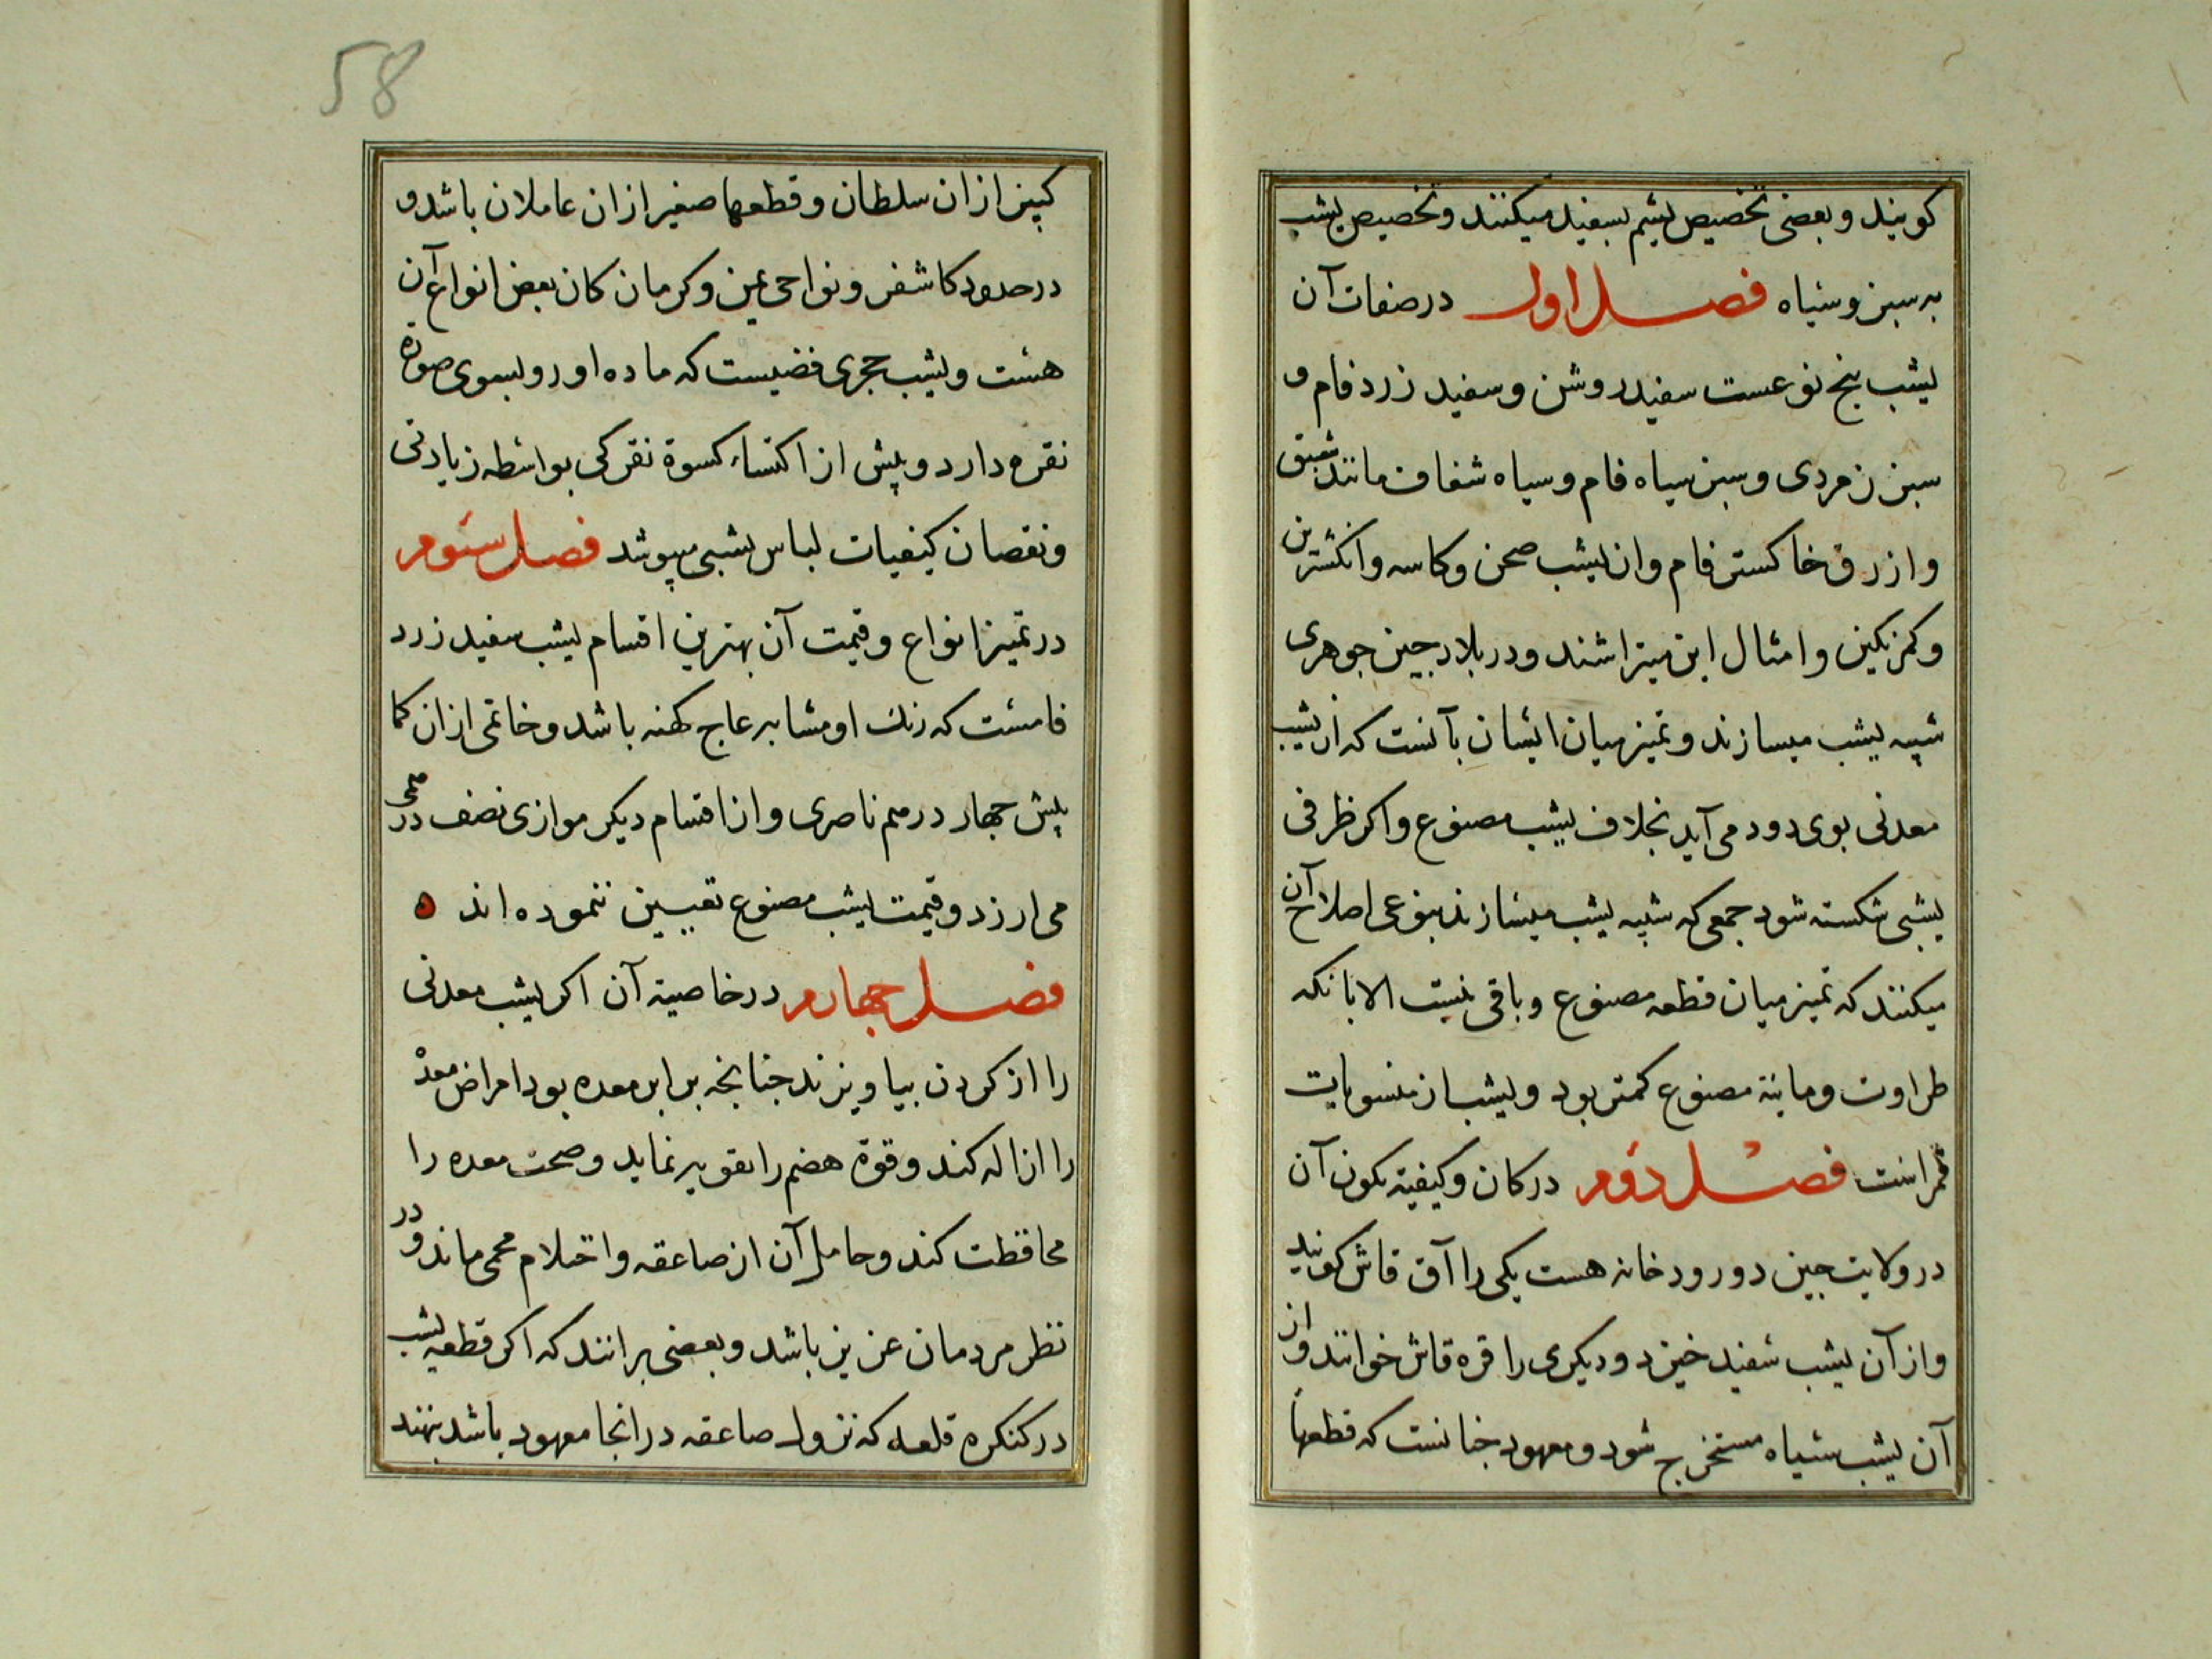 کویند و بعضی تخصیص یشم بسفید میکنند و تخصیص یشب
به سبز و سیاه فصل اول در صفات آن
یشب پنج نوعست سفید روشن و سفید زرد فام و
سبز زمردی و سبز سیاه فام و سیاه شفاف مانند شبق
و ازرق خاکستر فام و از یشب صحن و کاسه و انکشترین
و کمر نکین و امثال این میتراشند و در بلاد جین جوهری
شبیه یشب میسازند و تمیز میان ایشان بآنست که از یشب
معدنی بوی دود می آید بخلاف یشب مصنوع و اکر ظرفی
یشبی شکسته شود جمعی که شبیه یشب میسازند بنوعی اصلاح آن
میکنند که تمیز میان قطعه مصنوع و باقی نیست الا بانکه
طراوت و مائیة مصنوع کمتر بود و یشب از منسوبات
قمر است فصل دوم در کان و کیفیة تکون آن
در ولایت جین دو رودخانه هست یکی را آق قاش کویند
و از آن یشب سفید خیزد و دیکری را قره قاش خوانند و از
آن یشب سیاه مستخرج شود و معهود جنانست که قطعها
کبیر از ان سلطان و قطعها صغیر از ان عاملان باشد و
در حدود کاشغر و نواحی یمن و کرمان کان بعض انواع آن
هست و یشب حجری فضیست که ماده او رو بسوی صورة
نقره دارد و پیش از اکتساء کسوة نقرکی بواسطه زیادتی
و نقصان کیفیات لباس یشبی میپوشد فصل سیوم
در تمیز انواع و قیمت آن بهترین اقسام یشب سفید زرد
فامست که رنك او مشابه عاج کهنه باشد و خاتمی از ان کما
بیش جهار درهم ناصری و از اقسام دیکر موازی نصف درهمی
می ارزد و قیمت یشب مصنوع تعیین ننموده اند ه
فصل جهارم در خاصیة آن اکر یشب معدنی
را از کردن بیاویزند جنانجه برابر معده بود امراض معده
را ازاله کند و قوة هضم را تقویه نماید و صحت معده را
محافظت کند و حامل آن از صاعقه و احتلام محمی ماند و در
نظر مردمان عزیز باشد و بعضی برانند که اکر قطعه یشب
در کنکره قلعه که نزول صاعقه در انجا معهود باشد بنهند
58